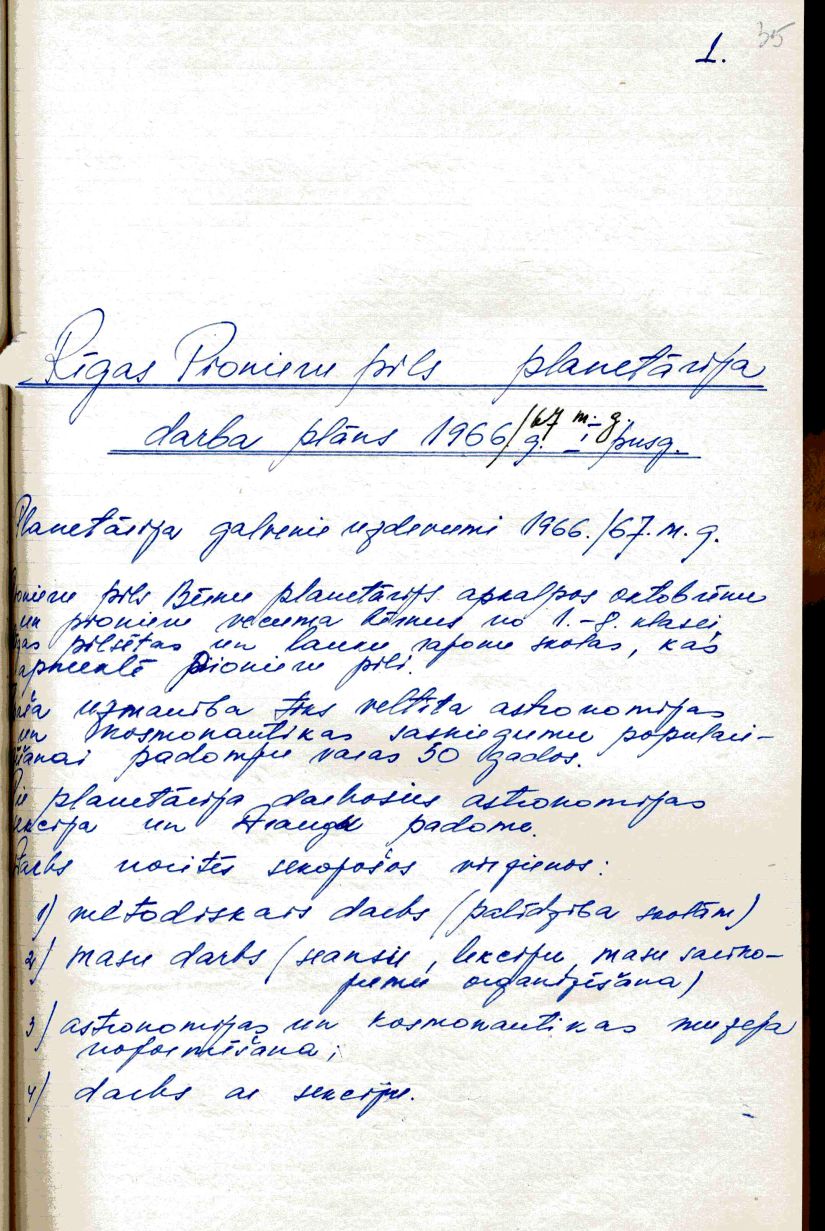 1. 35
Rīgas Pionieru pils planetārija
darba plāns 1966/67 m. g.
g. I pusg.
Planetārija galvenie uzdevumi 1966./67. m. g.
Pionieru pils Bērnu planetārijs apkalpos oktobrēnu
un pionieru vecuma bērnus no 1.-8. klasei,
pilsētas un lauku rajonu skolas, kas
apmeklē Pionieru pili.
uzmanība tiks veltīta astronomijas
un kosmonautikas sasniegumu populari-
zēšanai padomju varas 50 gados.
Pie planetārija darbosies astronomijas
sekcija un draugu padome.
Darbs noritēs sekojošos virzienos:
1) metodiskais darbs (palīdzība skolām)
2) masu darbs (seansu, lekciju, masu sarīko-
jumu organizēšana)
3) astronomijas un kosmonautikas muzeja
noformēšana;
4) darbs ar sekciju.